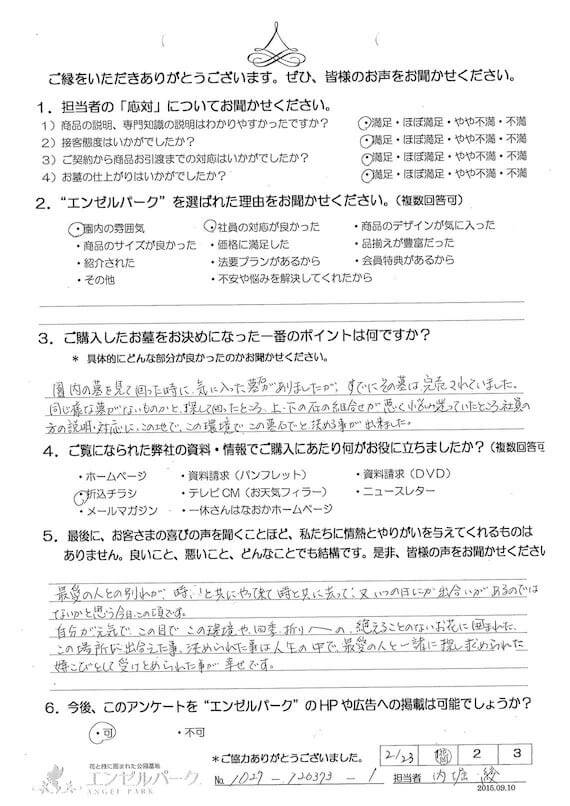 ご縁をいただきありがとうございます。ぜひ、皆様のお声をお聞かせください。
1. 担当者の「応対」についてお聞かせください。
1）商品の説明、専門知識の説明はわかりやすかったですか？ 満足・ほぼ満足・やや不満・不満
2）接客態度はいかがでしたか？ 満足・ほぼ満足・やや不満・不満
3）ご契約から商品お引渡までの対応はいかがでしたか？ 満足・ほぼ満足・やや不満・不満
4）お墓の仕上がりはいかがでしたか？ 満足・ほぼ満足・やや不満・不満
2. “エンゼルパーク”を選ばれた理由をお聞かせください。（複数回答可）
・園内の雰囲気 ・社員の対応が良かった ・商品のデザインが気に入った
・商品のサイズが良かった ・価格に満足した ・品揃えが豊富だった
・紹介された ・法要プランがあるから ・会員特典があるから
・その他 ・不安や悩みを解決してくれたから
3. ご購入したお墓をお決めになった一番のポイントは何ですか？
* 具体的にどんな部分が良かったのかお聞かせください。
園内の墓を見て回った時に、気に入った墓石がありましたが、すでにその墓は完売されていました。
同じ様な墓がないものかと、探して回ったところ、上・下の石の組合せが悪く小悩み迷っていたところ社員の
方の説明・対応に、この地で、この環境で この墓石でと決める事が出来ました。
4. ご覧になられた弊社の資料・情報でご購入にあたり何がお役に立ちましたか？（複数回答可
・ホームページ ・資料請求（パンフレット） ・資料請求（DVD）
・折込チラシ ・テレビCM（お天気フィラー） ・ニュースレター
・メールマガジン ・一休さんはなおかホームページ
5. 最後に、お客さまの喜びの声を聞くことほど、私たちに情熱とやりがいを与えてくれるものは
ありません。良いこと、悪いこと、どんなことでも結構です。是非、皆様の声をお聞かせくださ
最愛の人との別れが、時と共にやって来て 時と共に去って、又 いつの日にか出合いがあるのでは
ないかと思う今日この頃です。
自分が元気で、この目で この環境や、四季折り々の、絶えることのないお花に囲まれた、
この場所に出合えた事、決められた事は人生の中で、最愛の人と一諸に探し求められた
嬉こびとして受けとめられた事が 幸せです。
6. 今後、このアンケートを“エンゼルパーク”のHPや広告への掲載は可能でしょうか？
・可 ・不可
*ご協力ありがとうございました。
2/23 2 3
花と緑に囲まれた公園墓地
エンゼルパーク
ANGEL PARK
No. 1027-120373-1 担当者 内堀 綾
2015.09.10